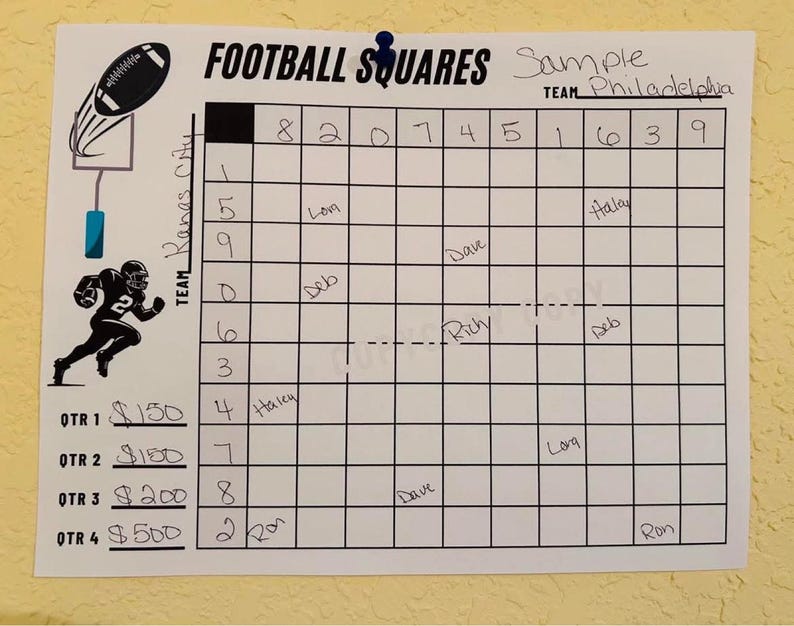 FOOTBALL SQUARES Sample
TEAM Philadelphia
TEAM Kanas City
8 2 0 7 4 5 1 6 3 9
1
5 Lora Haley
9 Dave
0 Deb
6 Rich Deb
3
4 Haley
7 Lora
8 Dave
2 Ron Ron
COPY COPY COPY
2
QTR 1 $150
QTR 2 $150
QTR 3 $200
QTR 4 $500